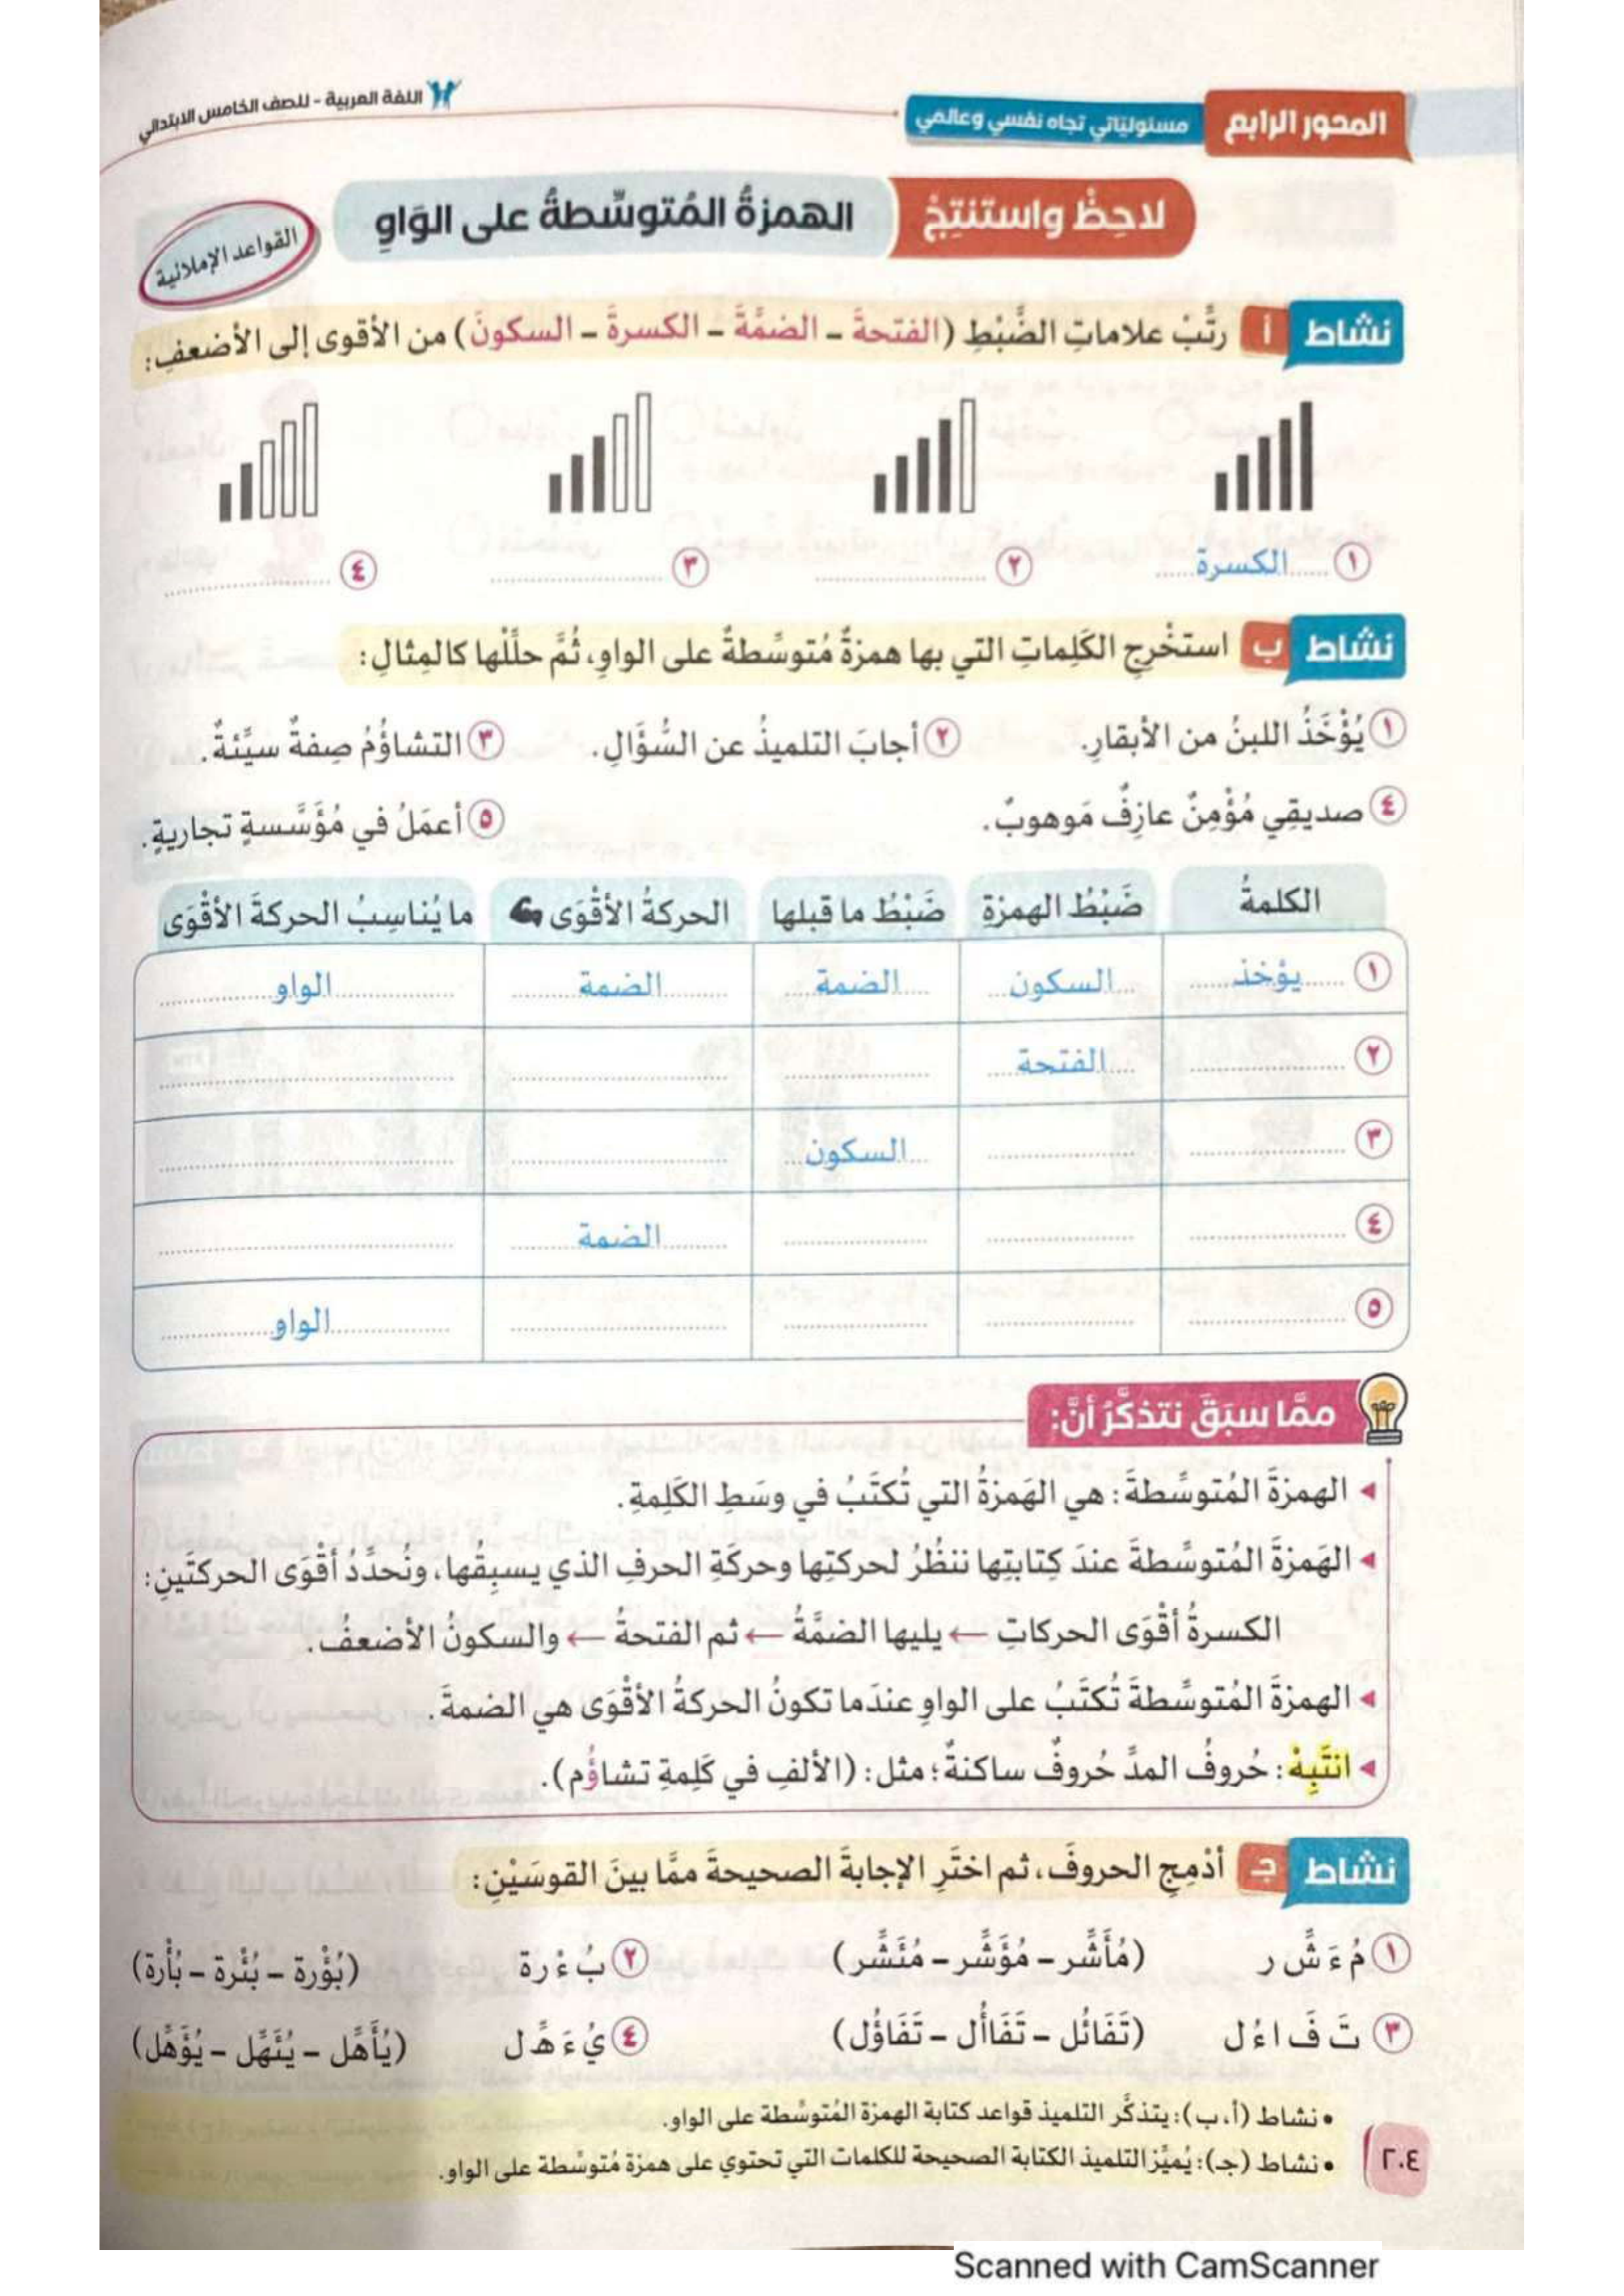 المحور الرابع مسئولياتي تجاه نفسي وعالمي
اللغة العربية - للصف الخامس الابتدائي
لاحِظْ واستنتِجْ الهمزةُ المُتوسِّطةُ على الوَاوِ
القواعد الإملائية
نشاط أ رتِّبْ علاماتِ الضَّبْطِ (الفتحةَ – الضمَّةَ – الكسرةَ – السكونَ) من الأقوى إلى الأضعفِ:
١ الكسرة ٢ ٣ ٤
نشاط ب استخْرِجِ الكَلِماتِ التي بها همزةٌ مُتوسِّطةٌ على الواوِ، ثُمَّ حلِّلْها كالمِثالِ:
١ يُؤْخَذُ اللبنُ من الأبقارِ. ٢ أجابَ التلميذُ عن السُّؤَالِ. ٣ التشاؤُمُ صِفةٌ سيِّئةٌ.
٤ صديقِي مُؤْمِنٌ عازِفٌ مَوهوبٌ. ٥ أعمَلُ في مُؤَسَّسةٍ تجاريةٍ.
الكلمةُ ضَبْطُ الهمزةِ ضَبْطُ ما قبلها الحركةُ الأقْوَى ما يُناسِبُ الحركةَ الأقْوَى
١ يؤخذ السكون الضمة الضمة الواو
٢ الفتحة
٣ السكون
٤ الضمة
٥ الواو
ممَّا سبَقَ نتذكَّرُ أنَّ:
الهمزةَ المُتوسِّطةَ: هي الهَمزةُ التي تُكتَبُ في وسَطِ الكَلِمةِ.
الهَمزةَ المُتوسِّطةَ عندَ كِتابتِها ننظُرُ لحركتِها وحركَةِ الحرفِ الذي يسبِقُها، ونُحدِّدُ أقْوَى الحركتَينِ:
الكسرةُ أقْوَى الحركاتِ ← يليها الضمَّةُ ← ثم الفتحةُ ← والسكونُ الأضعفُ.
الهمزةَ المُتوسِّطةَ تُكتَبُ على الواوِ عندَما تكونُ الحركةُ الأقْوَى هي الضمةَ.
انتَبِهْ: حُروفُ المدِّ حُروفٌ ساكنةٌ؛ مثل: (الألفِ في كَلِمةِ تشاؤُم).
نشاط جـ أدْمِجِ الحروفَ، ثم اختَرِ الإجابةَ الصحيحةَ ممَّا بينَ القوسَيْنِ:
١ مُ ءَ شِّ ر (مُأَشِّر – مُؤَشِّر – مُئَشِّر) ٢ بُ ءْ رة (بُؤْرة – بُئْرة – بُأْرة)
٣ تَ فَ ا ءُ ل (تَفَائُل – تَفَاأُل – تَفَاؤُل) ٤ يُ ءَ هِّ ل (يُأَهِّل – يُئَهِّل – يُؤَهِّل)
• نشاط (أ، ب): يتذكَّر التلميذ قواعد كتابة الهمزة المُتوسِّطة على الواو.
• نشاط (جـ): يُميِّز التلميذ الكتابة الصحيحة للكلمات التي تحتوي على همزة مُتوسِّطة على الواو.
٢٠٤
Scanned with CamScanner